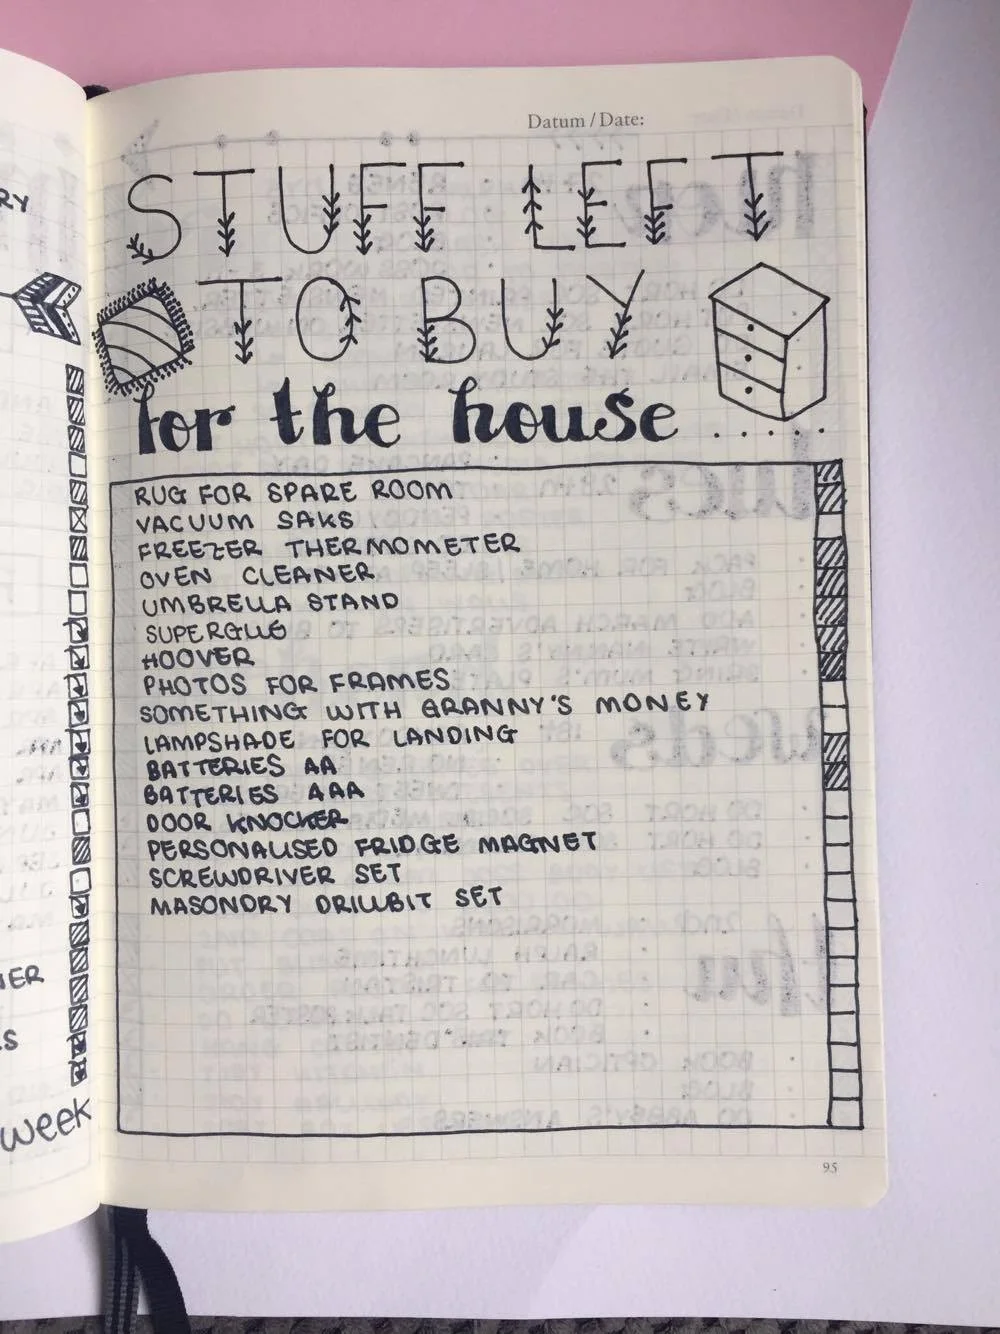 Datum / Date:
STUFF LEFT
TO BUY
for the house .....
RUG FOR SPARE ROOM
VACUUM SAKS
FREEZER THERMOMETER
OVEN CLEANER
UMBRELLA STAND
SUPERGLUE
HOOVER
PHOTOS FOR FRAMES
SOMETHING WITH GRANNY'S MONEY
LAMPSHADE FOR LANDING
BATTERIES AA
BATTERIES AAA
DOOR KNOCKER
PERSONALISED FRIDGE MAGNET
SCREWDRIVER SET
MASONDRY DRILLBIT SET
95
week